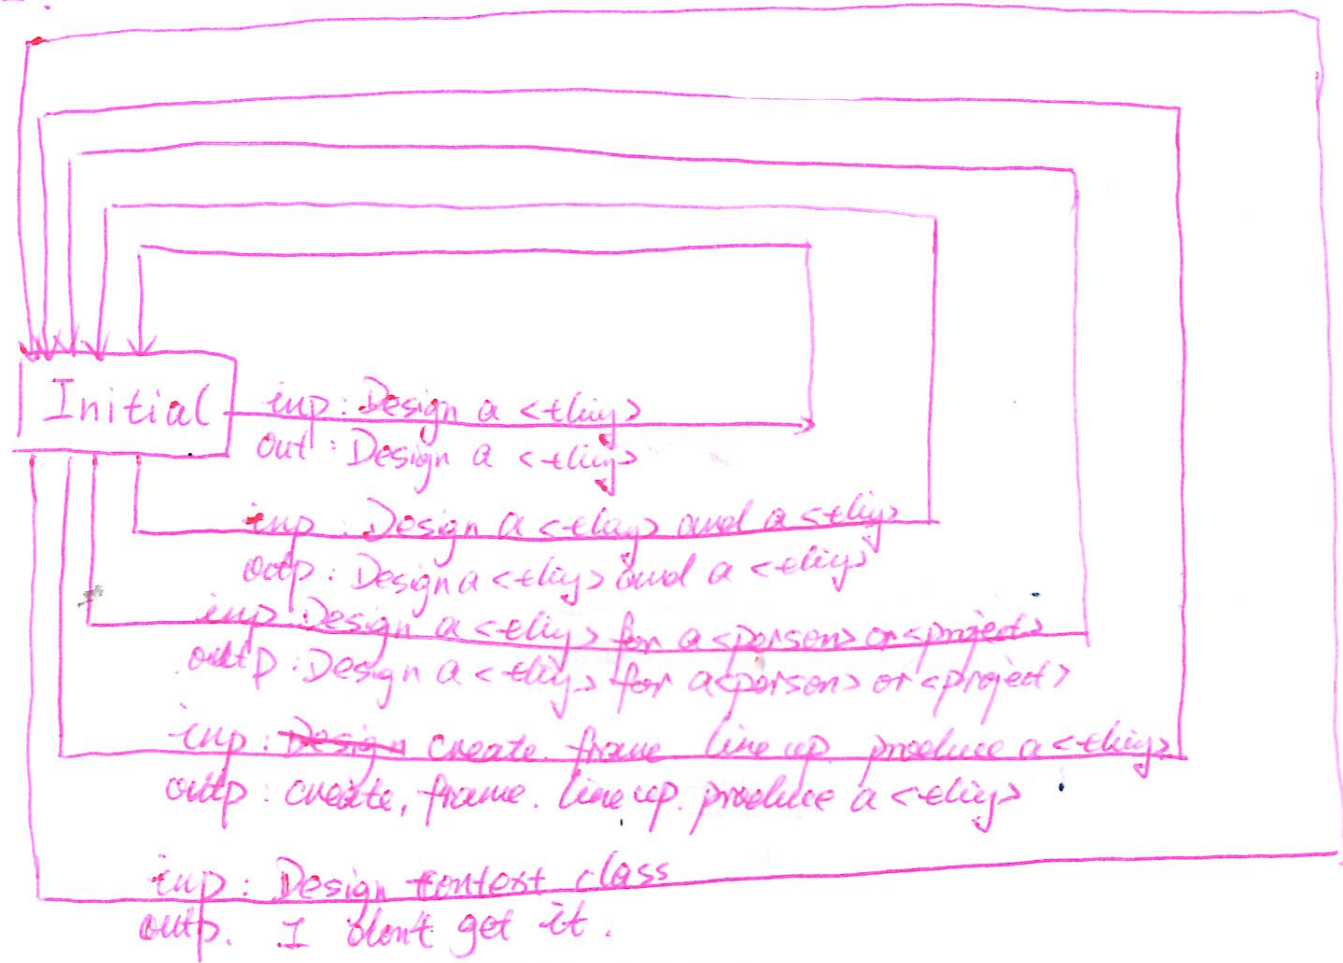 Initial
inp: Design a <thing>
out: Design a <thing>
inp: Design a <thing> and a <thing>
outp: Design a <thing> and a <thing>
inp: Design a <thing> for a <person> or <project>
outp: Design a <thing> for a <person> or <project>
inp: Design create. frame line up. produce a <thing>
outp: create, frame. line up. produce a <thing>
inp: Design context class
outp. I dont get it.